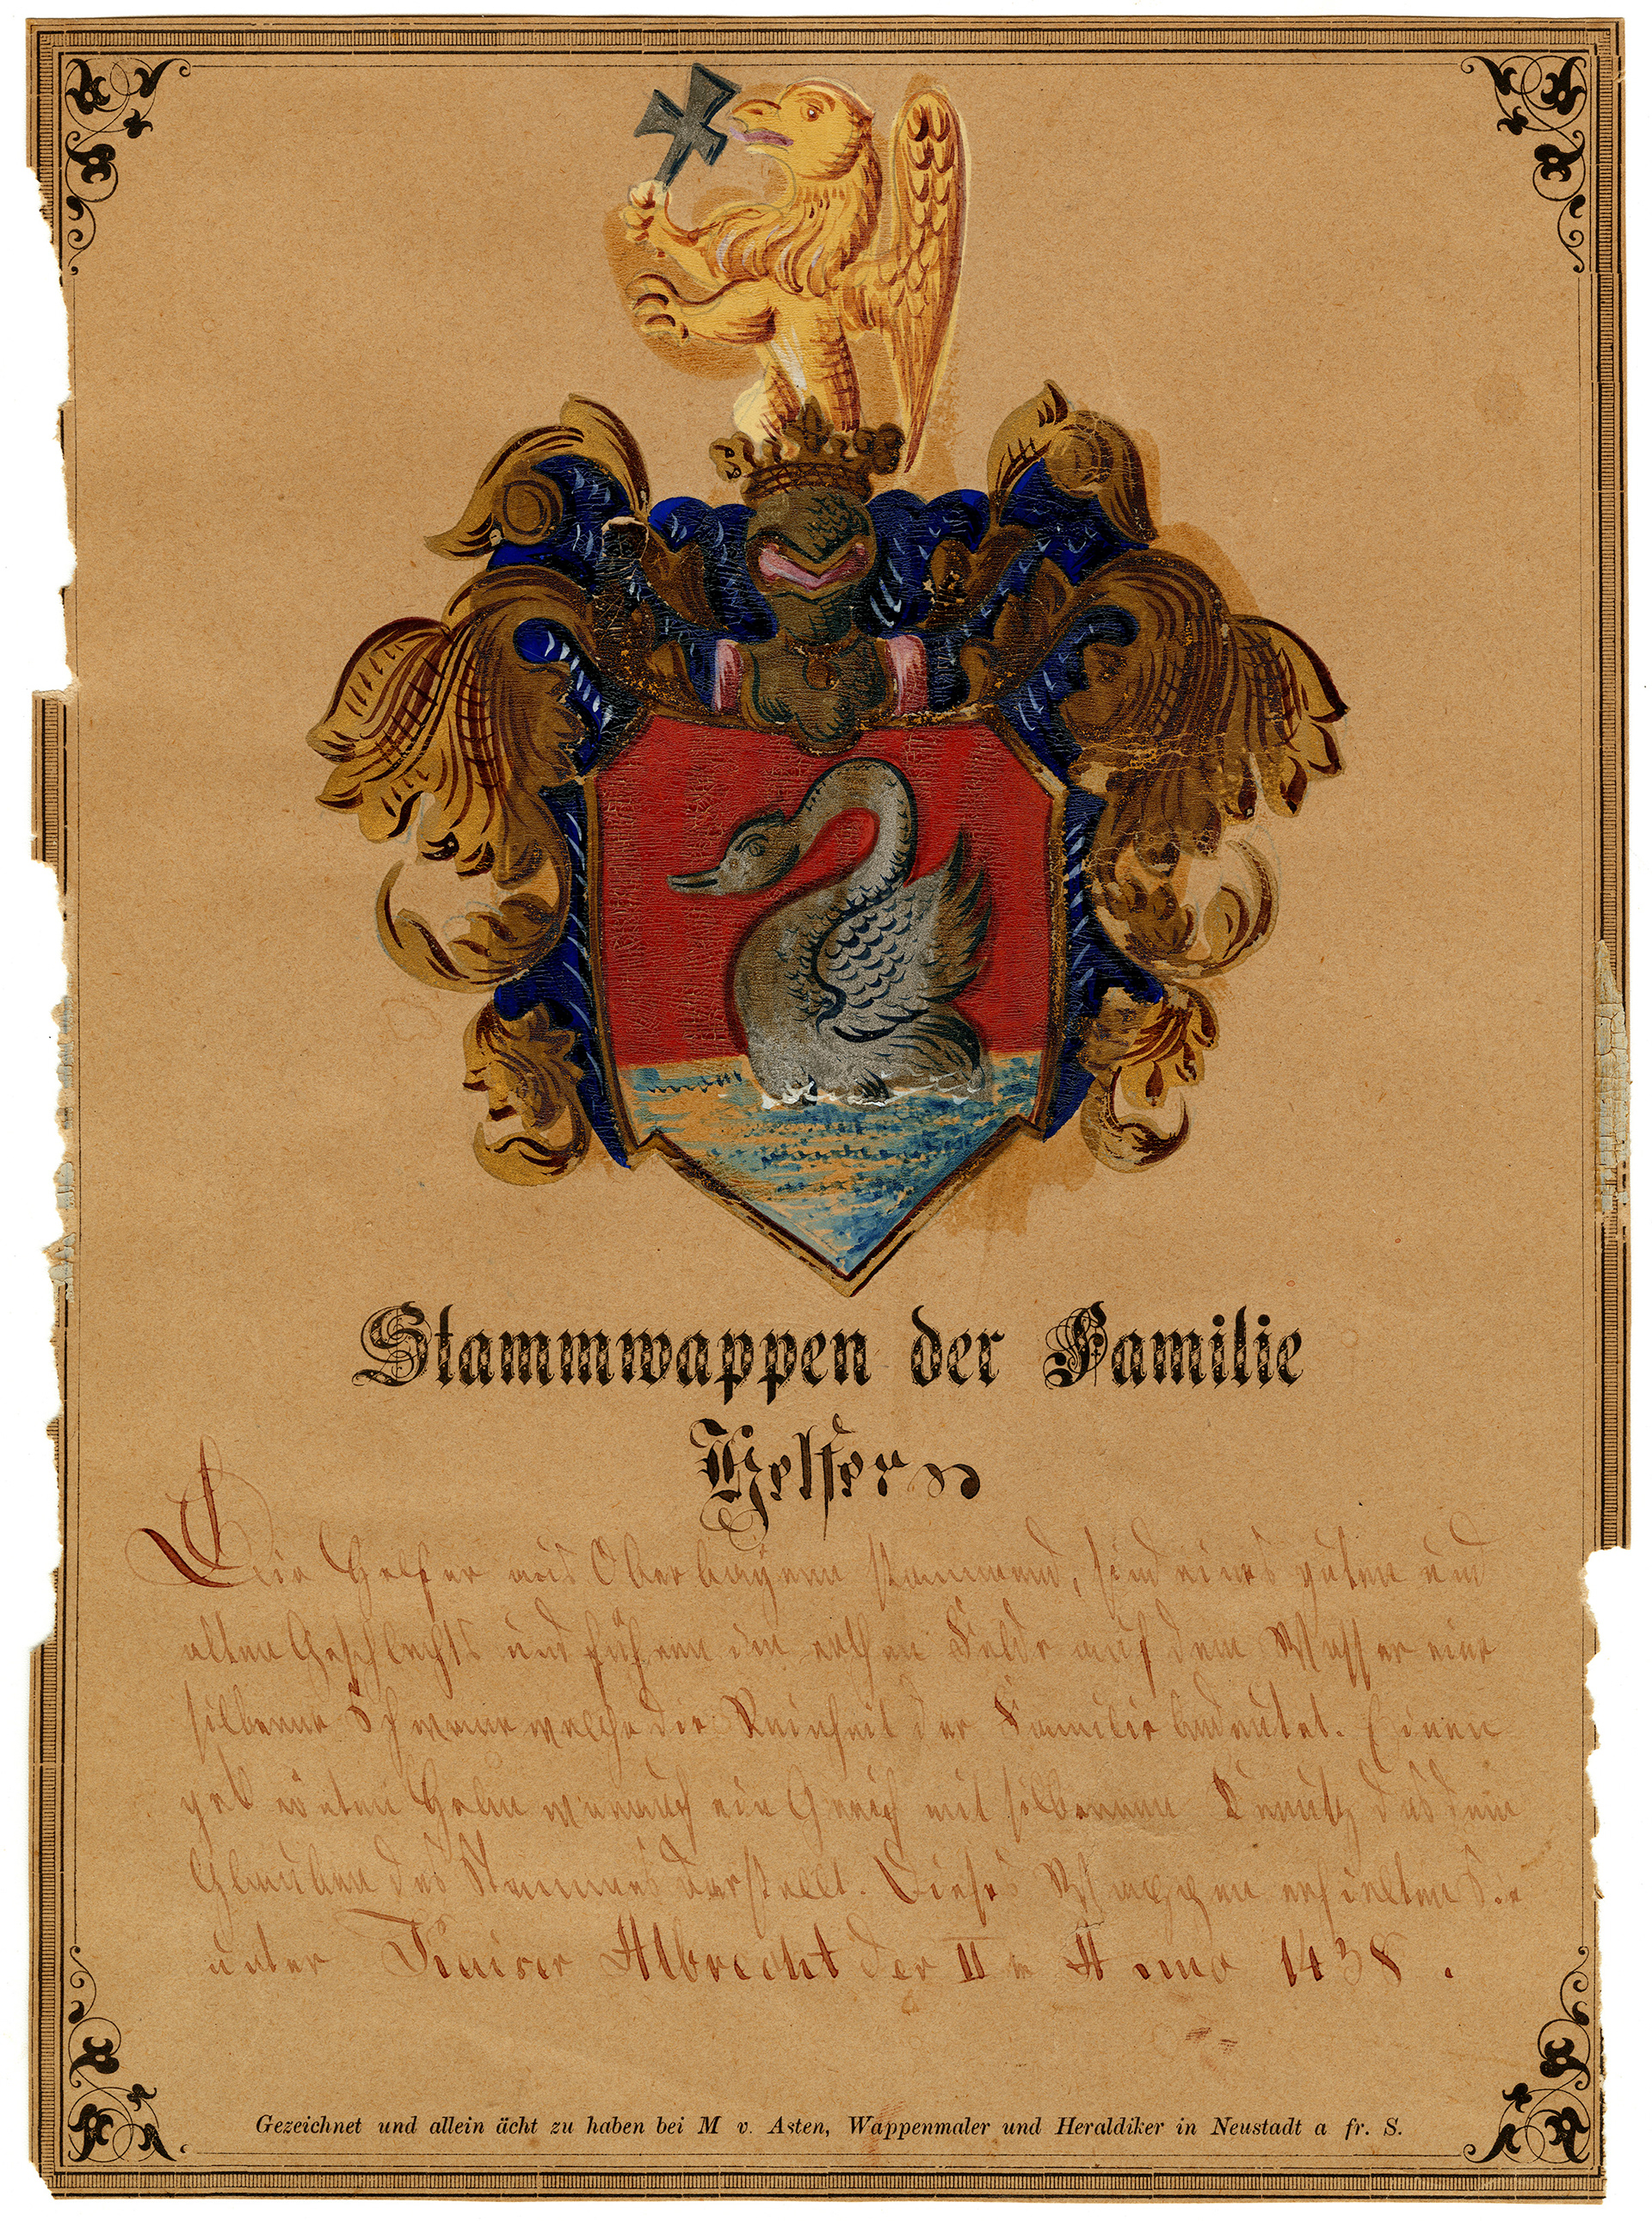 Stammwappen der Familie
Helfer
Die Helfer aus Oberbayern stammend, sind eines guten und
alten Geschlechts und führen im rothen Felde auf dem Wasser eine
silberne Schwane welche die Reinheit der Familie bedeutet. Einen
gekrönten Helm worauf ein Greif mit silbernem Kreutz das dem
Glauben des Stammes darstellt. Dieses Wappen erhielten Sie
unter Kaiser Albrecht der II in Anno 1438.
Gezeichnet und allein ächt zu haben bei M v. Asten, Wappenmaler und Heraldiker in Neustadt a fr. S.